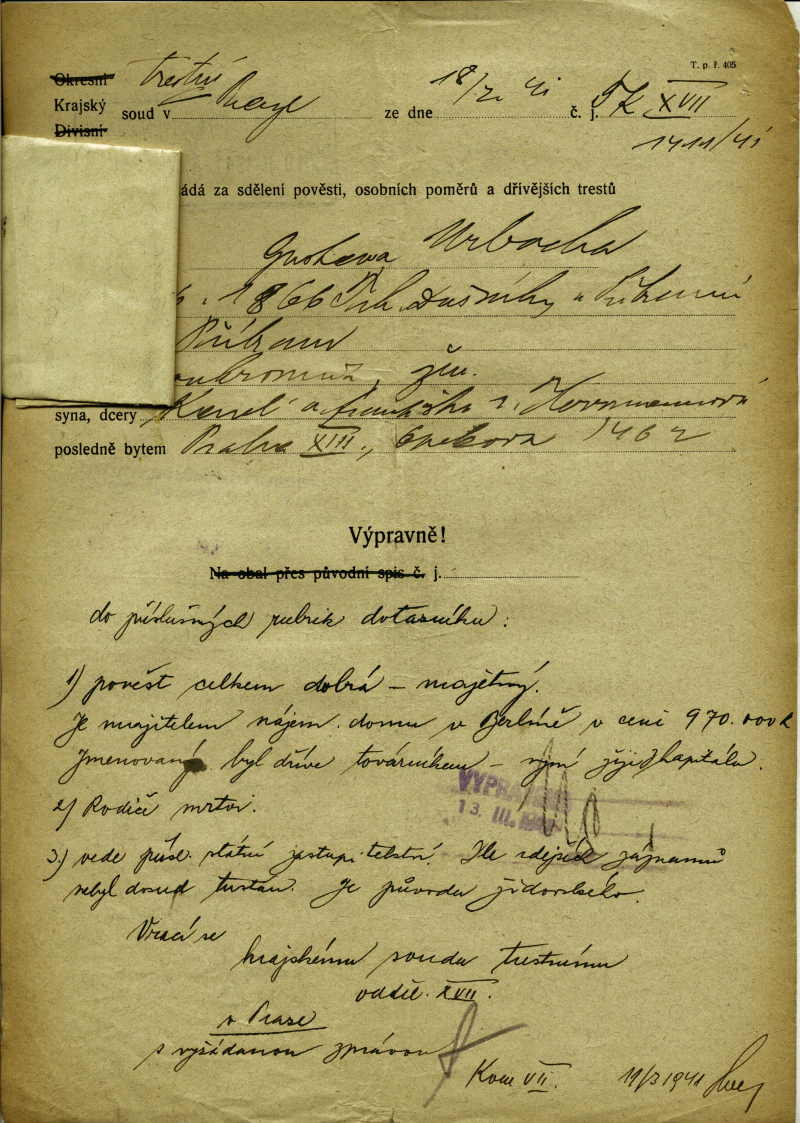 T. p. ř. 405
Okresní trestní
Krajský soud v Praze ze dne 18/2. 41 č. j. Tk XVII
Divisní
1411/41
ádá za sdělení pověsti, osobních poměrů a dřívějších trestů
Gustava Urbacha
1866 Dušníky u Příbrami
Příbram
soukromník, žen.
syna, dcery Karel a Františka r. Herrmannová
posledně bytem Praha XIII., 1462
Výpravně!
Na obal přes původní spis č. j.
do příslušných rubrik dotazníku:
1) pověst celkem dobrá – majetný.
Je majitelem nájem. domu v Berlíně v ceně 970.000 K
Jmenovaný byl dříve továrníkem – nyní žije z kapitálu.
VYPRAVENO
13. III. 1941
2) Rodiče mrtvi.
3.) vede přísl. státní zastupitelství. Dle zdejších záznamů
nebyl dosud trestán. Je původu židovského.
Vrací se
krajskému soudu trestnímu
odděl. XVII.
v Praze
s vyžádanou zprávou
Kom VII. 11/3 1941